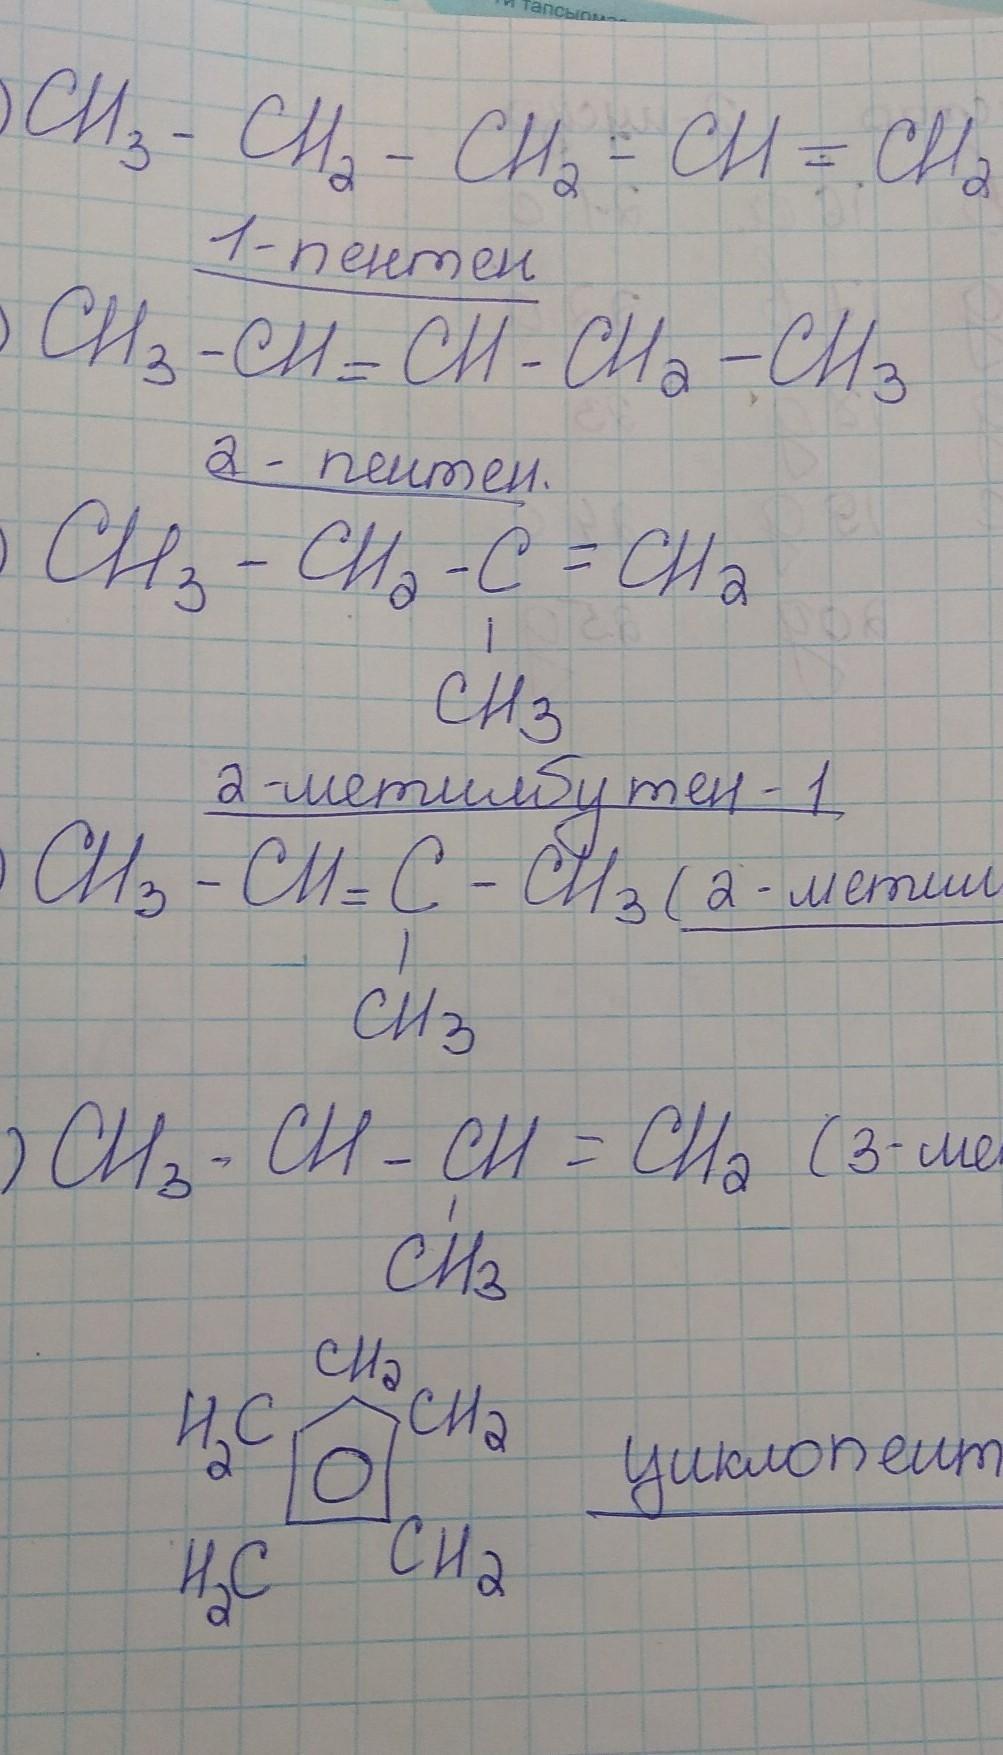 ти тапсырмас
)CH3 - CH2 - CH2 - CH = CH2
1-пентен
) CH3 - CH = CH - CH2 - CH3
2 - пентен.
) CH3 - CH2 - C = CH2
CH3
2-метилбутен-1
) CH3 - CH = C - CH3 (2-метил
CH3
) CH3 - CH - CH = CH2 (3-ме
CH3
CH2
H2C CH2
циклопент
H2C CH2